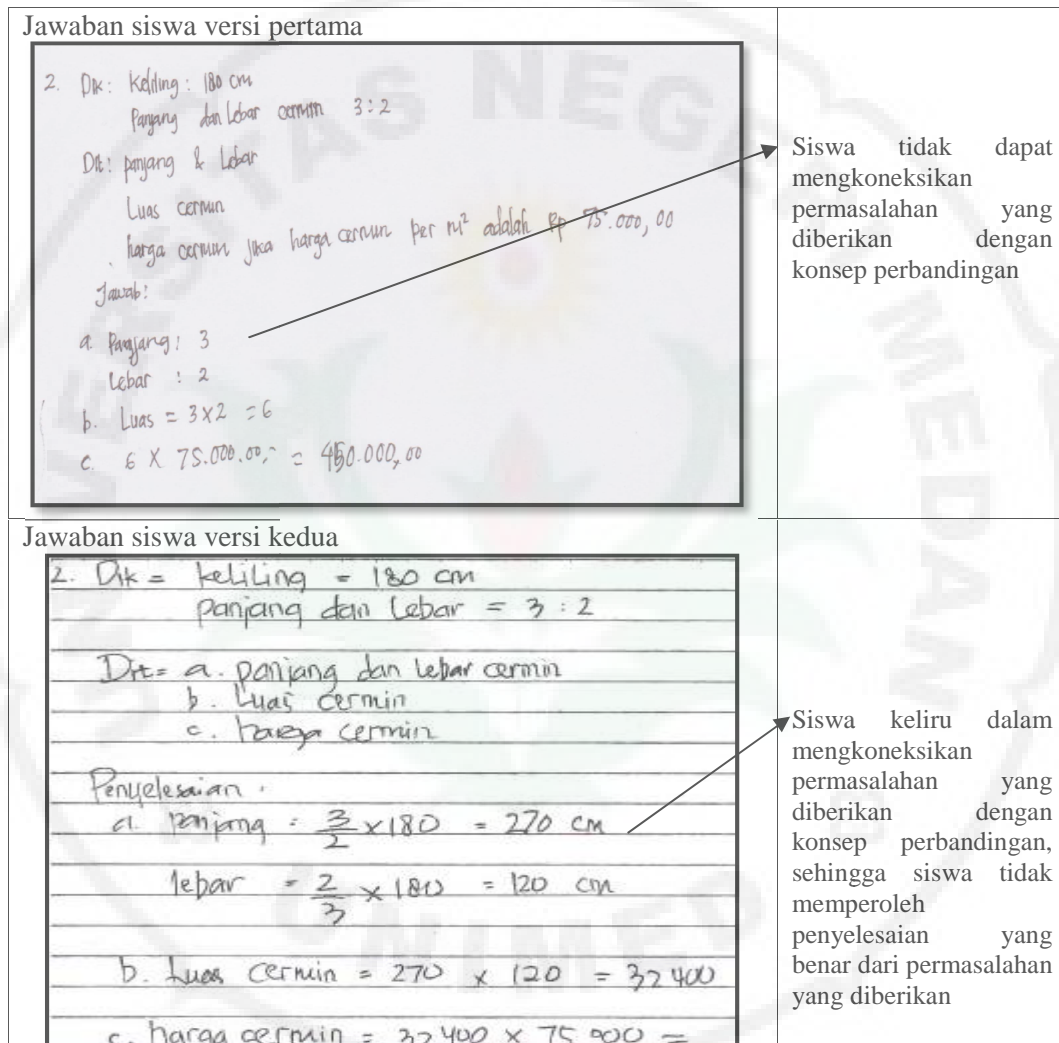 Jawaban siswa versi pertama
2. Dik: Keliling: 180 cm
Panjang dan Lebar cermin 3:2
Dit: panjang & Lebar
Luas cermin
harga cermin jika harga cermin per m² adalah Rp 75.000,00
Jawab:
a. Panjang: 3
Lebar : 2
b. Luas = 3x2 = 6
c. 6 X 75.000.00,- = 450.000,00
Siswa tidak dapat
mengkoneksikan
permasalahan yang
diberikan dengan
konsep perbandingan
Jawaban siswa versi kedua
2. Dik = keliling = 180 cm
panjang dan Lebar = 3 : 2
Dit= a. panjang dan lebar cermin
b. Luas cermin
c. harga cermin
Penyelesaian :
a. panjang = 3/2 x 180 = 270 cm
lebar = 2/3 x 180 = 120 cm
b. Luas cermin = 270 x 120 = 32400
c. harga cermin = 32400 x 75000 =
Siswa keliru dalam
mengkoneksikan
permasalahan yang
diberikan dengan
konsep perbandingan,
sehingga siswa tidak
memperoleh
penyelesaian yang
benar dari permasalahan
yang diberikan
UNIVERSITAS NEGERI MEDAN
UNIMED